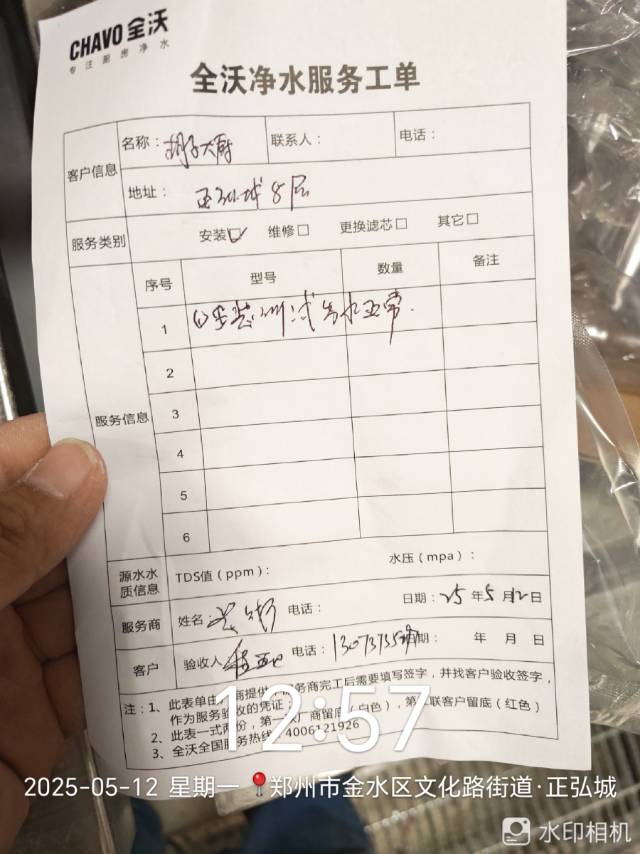 CHAVO 全沃
专注厨房净水
全沃净水服务工单
客户信息
名称：胡子大厨
联系人：
电话：
地址：正弘城8层
服务类别
安装☑ 维修□ 更换滤芯□ 其它□
服务信息
序号 型号 数量 备注
1 安装测试出水正常.
2
3
4
5
6
源水水质信息
TDS值（ppm）： 水压（mpa）：
服务商
姓名 电话： 日期：25年5月12日
客户
验收人 电话：1307375 期： 年 月 日
注：1、此表单由 商提供 务商完工后需要填写签字，并找客户验收签字，
作为服务验收的凭证；
2、此表一式两份，第一 厂商留底（白色），第 联客户留底（红色）
3、全沃全国服务热线 4006121926
12:57
2025-05-12 星期一 郑州市金水区文化路街道·正弘城
水印相机